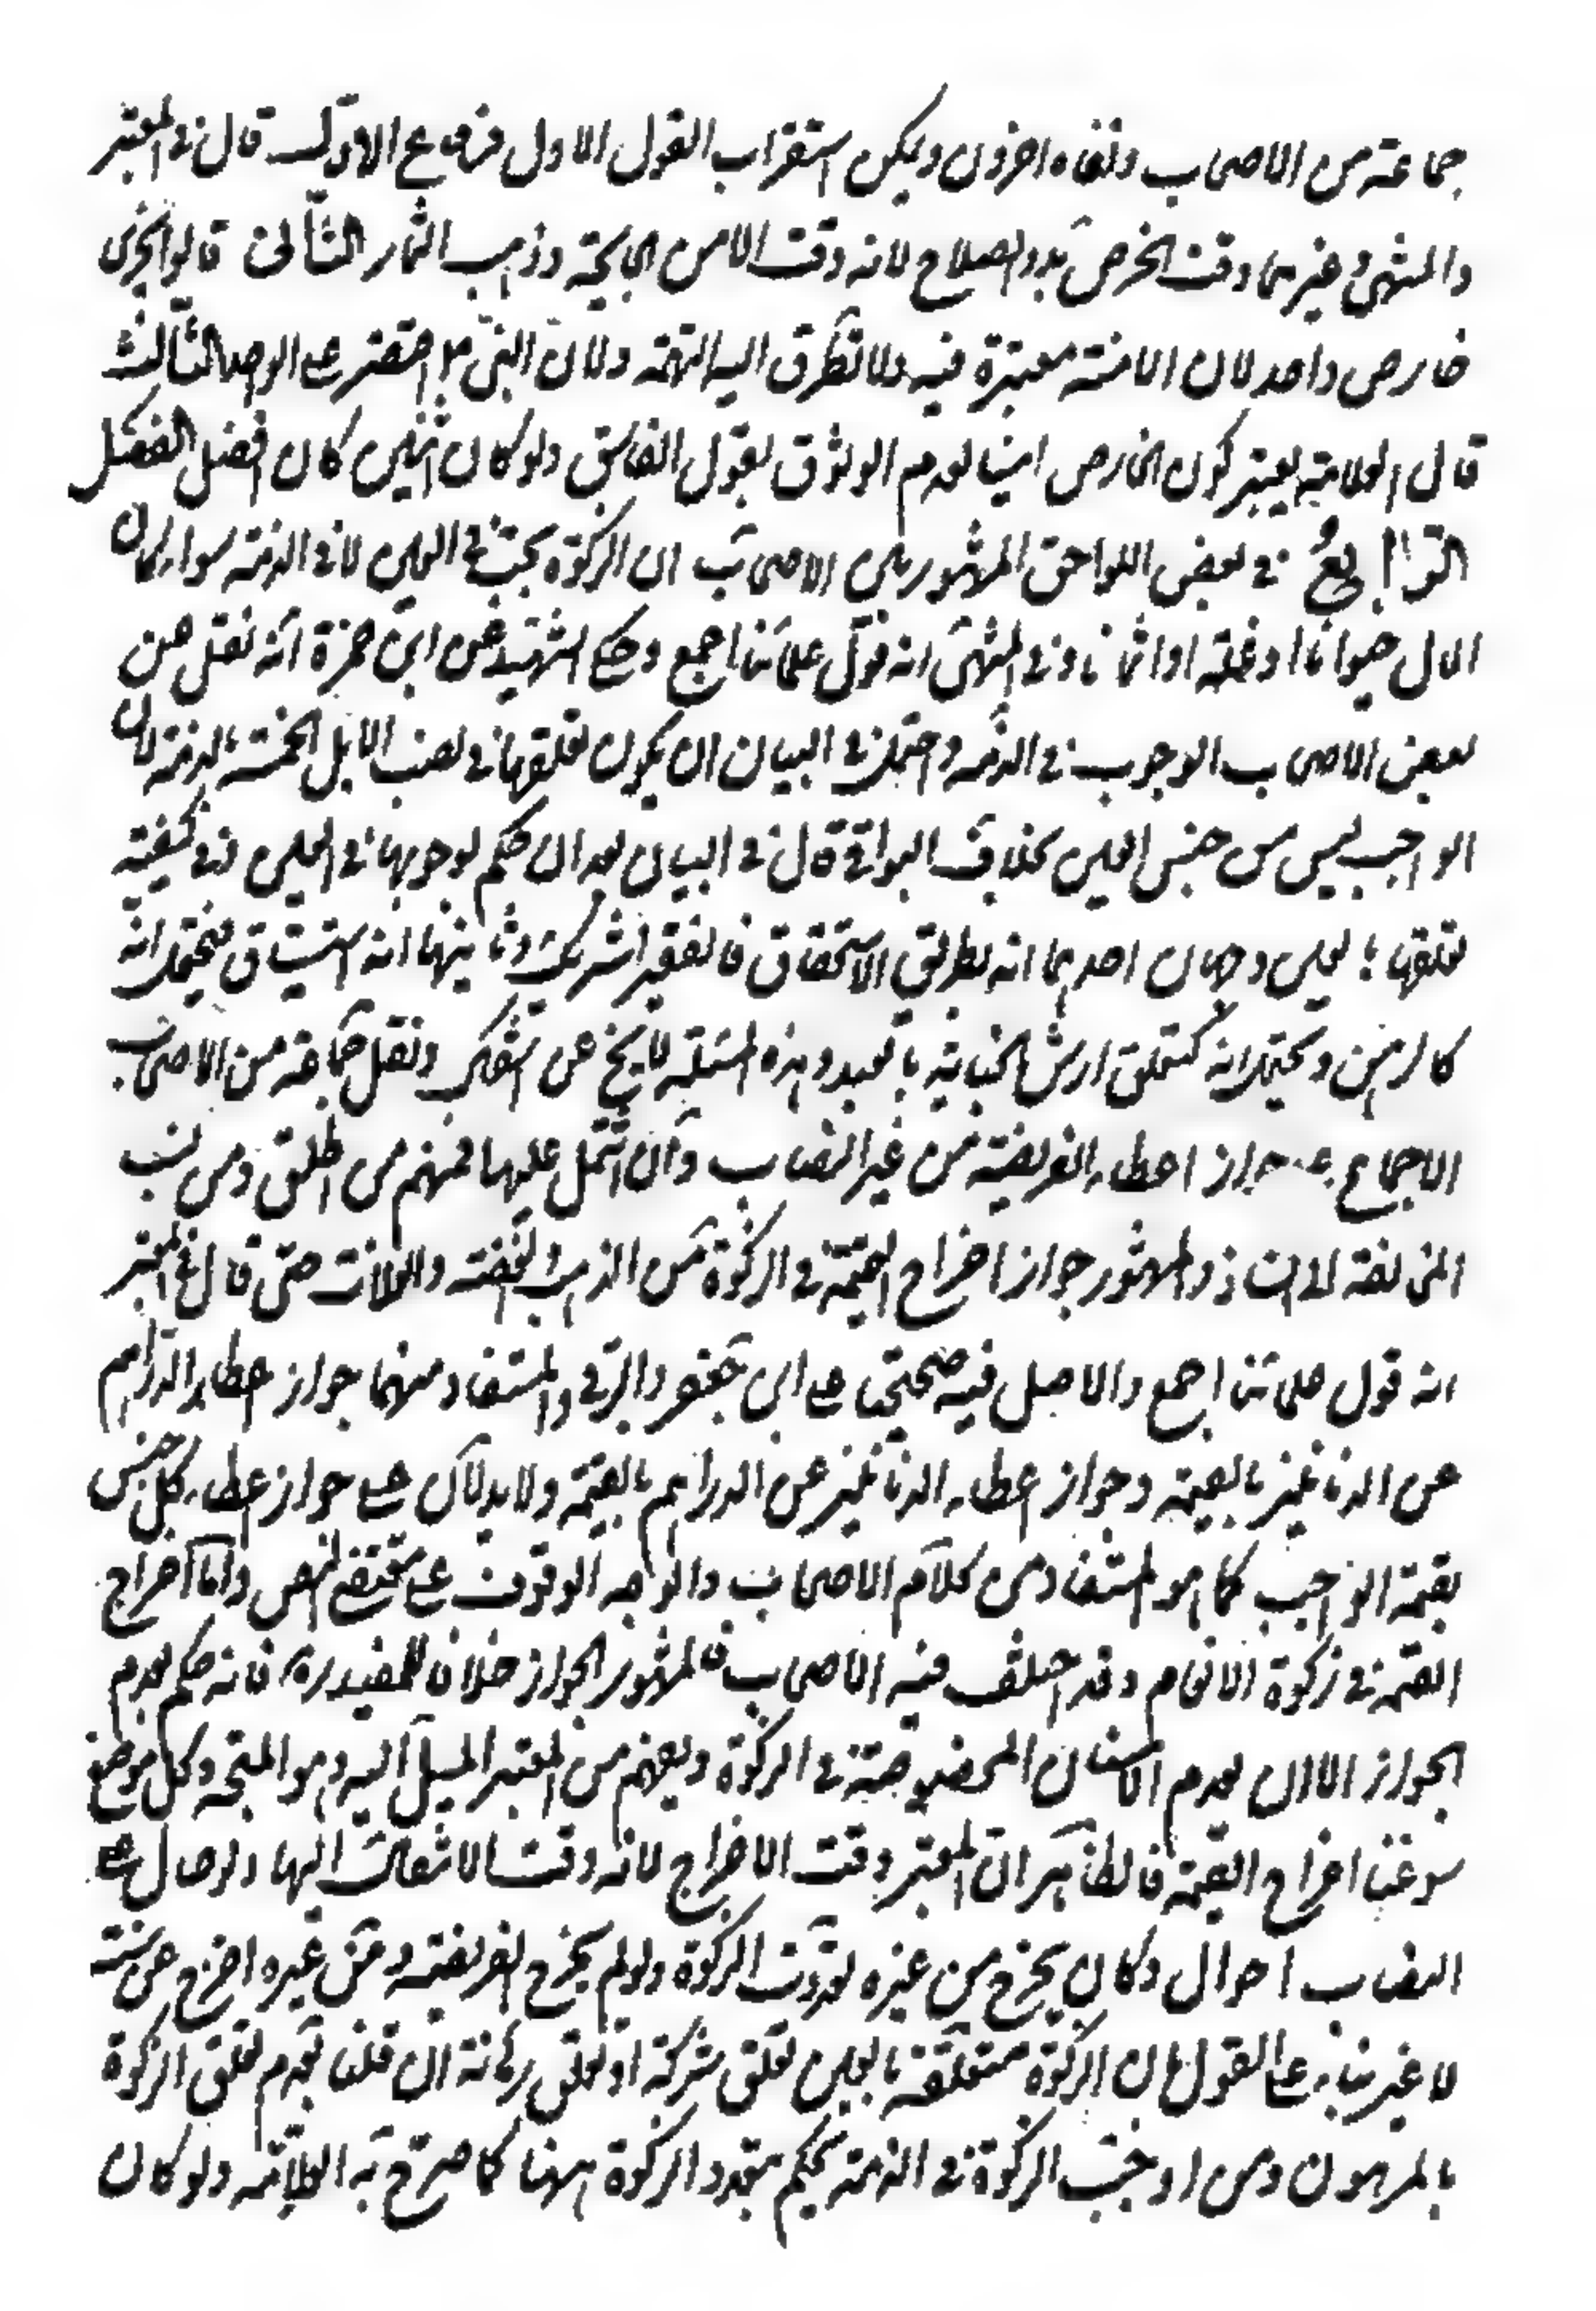 جماعة من الاصحاب ونفاه اخرون ويمكن استقراب القول الاول فروع الاول قال في المعتبر
والمنتهى وغيرهما وقت الخرص بدو الصلاح لانه وقت الامن من الجايحة وذهاب الثمار الثاني قالوا يجزى
خارص واحد لان الامانة معتبرة فيه ولا تطرق اليه التهمة ولان النبي ص اقتصر على الواحد الثالث
قال العلامة يعتبر كون الخارص امينا لعدم الوثوق بقول الفاسق ولو كان اثنين كان افضل الفصل
الرابع في بعض اللواحق المشهور بين الاصحاب ان الزكوة تجب في العين لا في الذمة سواء كان
المال حيوانا او غلة او اثمانا وفي المنتهى انه قول علمائنا اجمع وحكى الشهيد عن ابن حمزة انه نقل عن
بعض الاصحاب الوجوب في الذمة واحتمل في البيان ان يكون تعلقها في نصب الابل الخمسة بالذمة لان
الواجب ليس من جنس العين بخلاف البواقي قال في البيان بعد ان حكم بوجوبها في العين وفي كيفية
تعلقها بالعين وجهان احدهما انه بطريق الاستحقاق فالفقير شريك وثانيهما انه استيثاق فيحتمل انه
كالرهن ويحتمل انه كتعلق ارش الجناية بالعبد وهذه المسئلة لا يخ عن اشكال ونقل جماعة من الاصحاب
الاجماع على جواز اعطاء الفريضة من غير النصاب وان اشتمل عليها فمنهم من اطلق ومن نسب
المخالفة الى الشاذ والمشهور جواز اخراج القيمة في الزكوة من الذهب والفضة والغلات حتى قال في المعتبر
انه قول علمائنا اجمع والاصل فيه صحيحتا على ابن جعفر والبرقي والمستفاد منهما جواز اعطاء الدراهم
عن الدنانير بالقيمة وجواز اعطاء الدنانير عن الدراهم بالقيمة ولا يدلان على جواز اعطاء كل جنس
بقيمة الواجب كما هو المستفاد من كلام الاصحاب والوجه الوقوف على مقتضى النص واما اخراج
القيمة في زكوة الانعام وقد اختلف فيه الاصحاب فالمشهور الجواز خلافا للمفيد ره فانه حكم بعدم
الجواز الا ان يعدم الاسنان المخصوصة في الزكوة ويفهم من المعتبر الميل اليه وهو المتجه وكل موضع
سوغنا اخراج القيمة فالظاهر ان المعتبر وقت الاخراج لانه وقت الانتقال اليها ولو حال على
النصاب احوال وكان يخرج من غيره تعددت الزكوة ولو لم يخرج الفريضة من غيره اخرج عن سنة
لا غير بناء على القول بان الزكوة متعلقة بالعين تعلق شركة او تعلق رهانة ان قلنا بعدم تعلق الزكوة
بالمرهون ومن اوجب الزكوة في الذمة يحكم بتعدد الزكوة ههنا كما صرح به العلامة ولو كان